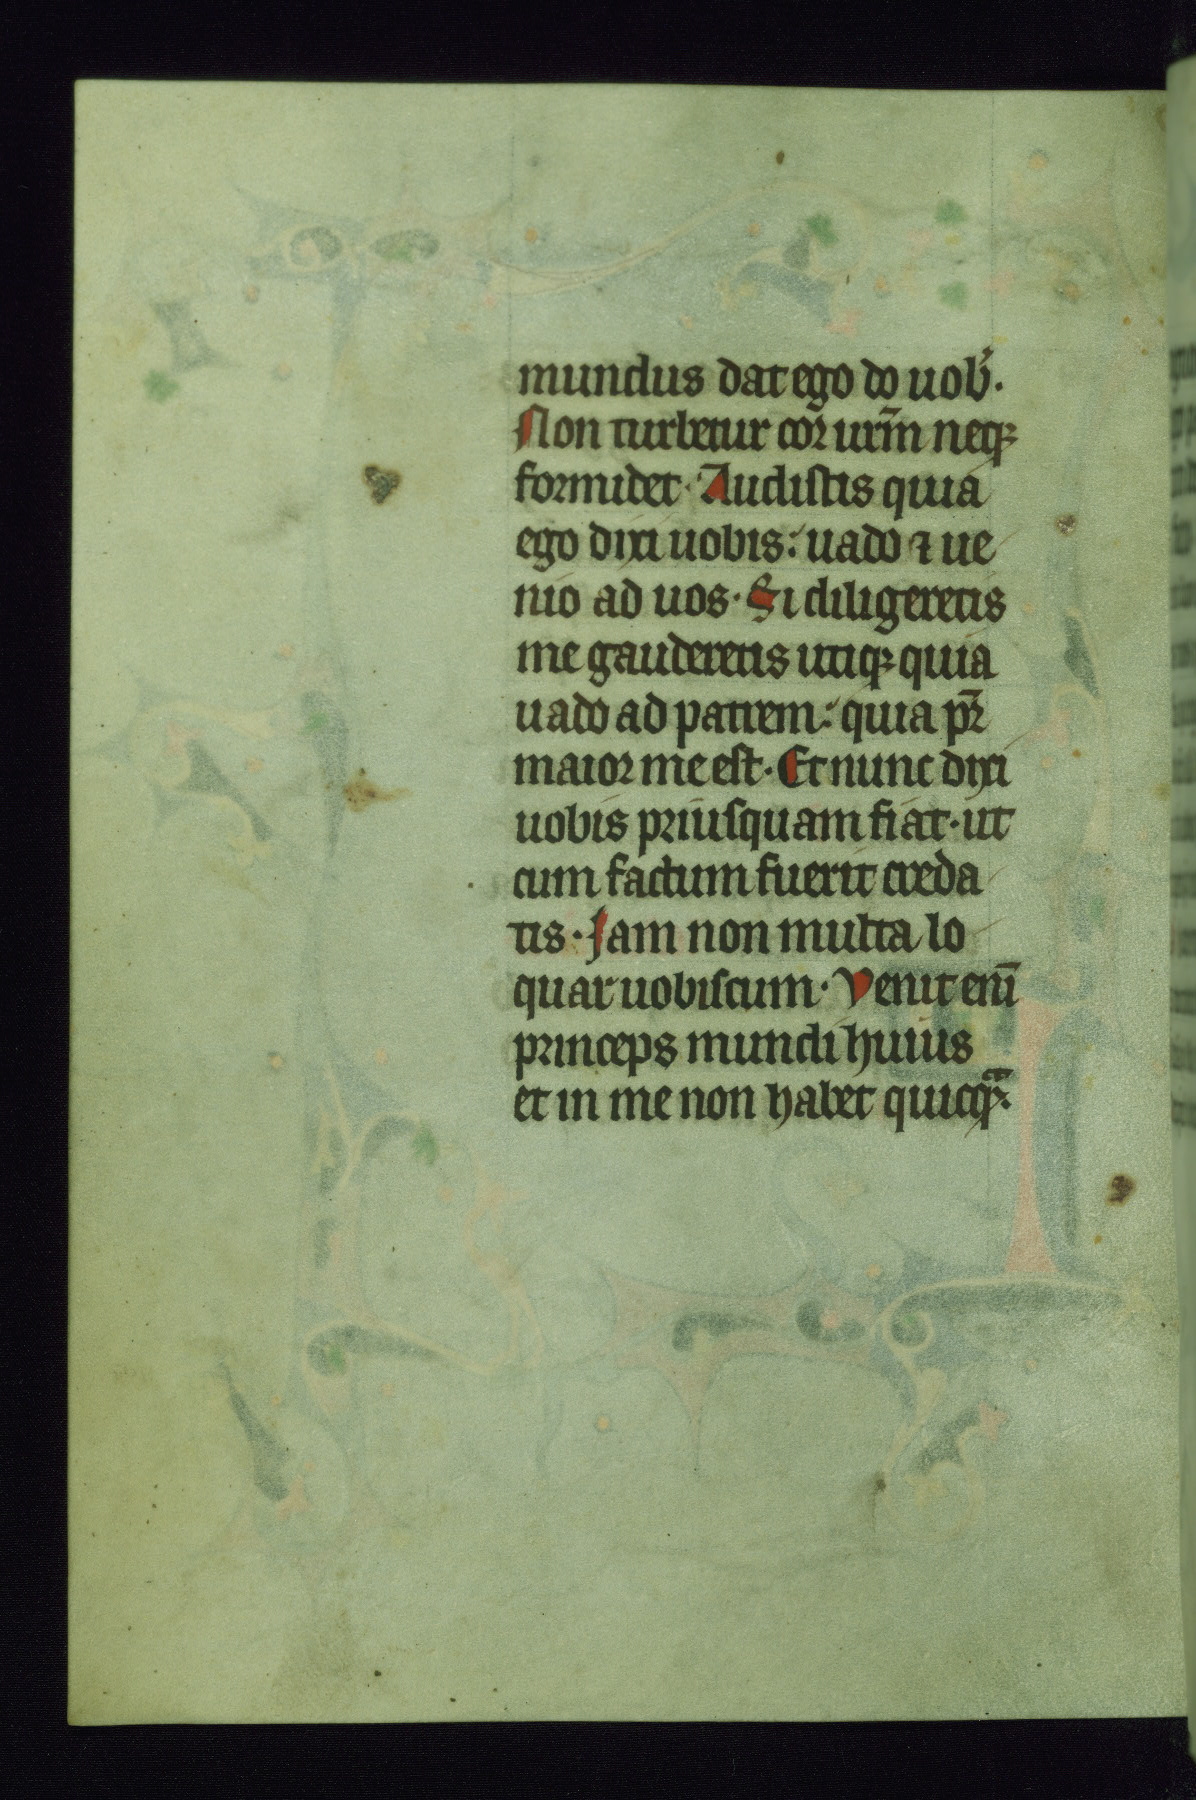 mundus dat ego do uob̾.
Non turbetur cor urm̄ neqꝫ
formidet · Audistis quia
ego dixi uobis : uado ⁊ ue
nio ad uos · Si diligeretis
me gauderetis utiqꝫ quia
uado ad patrem : quia pr̄
maior me est · Et nunc dixi
uobis priusquam fiat · ut
cum factum fuerit creda
tis · Iam non multa lo
quar uobiscum · Venit enī
princeps mundi huius
et in me non habet quicqᷓ.